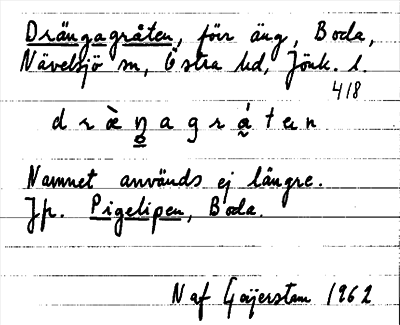 Drängagråten, förr äng, Boda,
Nävelsjö sn, Östra hd, Jönk. l.
418
d r æ̀ ŋ a g r á t ɛ n
Namnet används ej längre.
Jfr. Pigelipen, Boda.
N af Geijerstam 1962